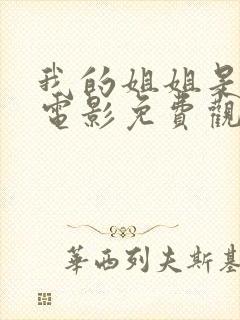 我的姐姐呆
電影免費觀
華西列夫斯基